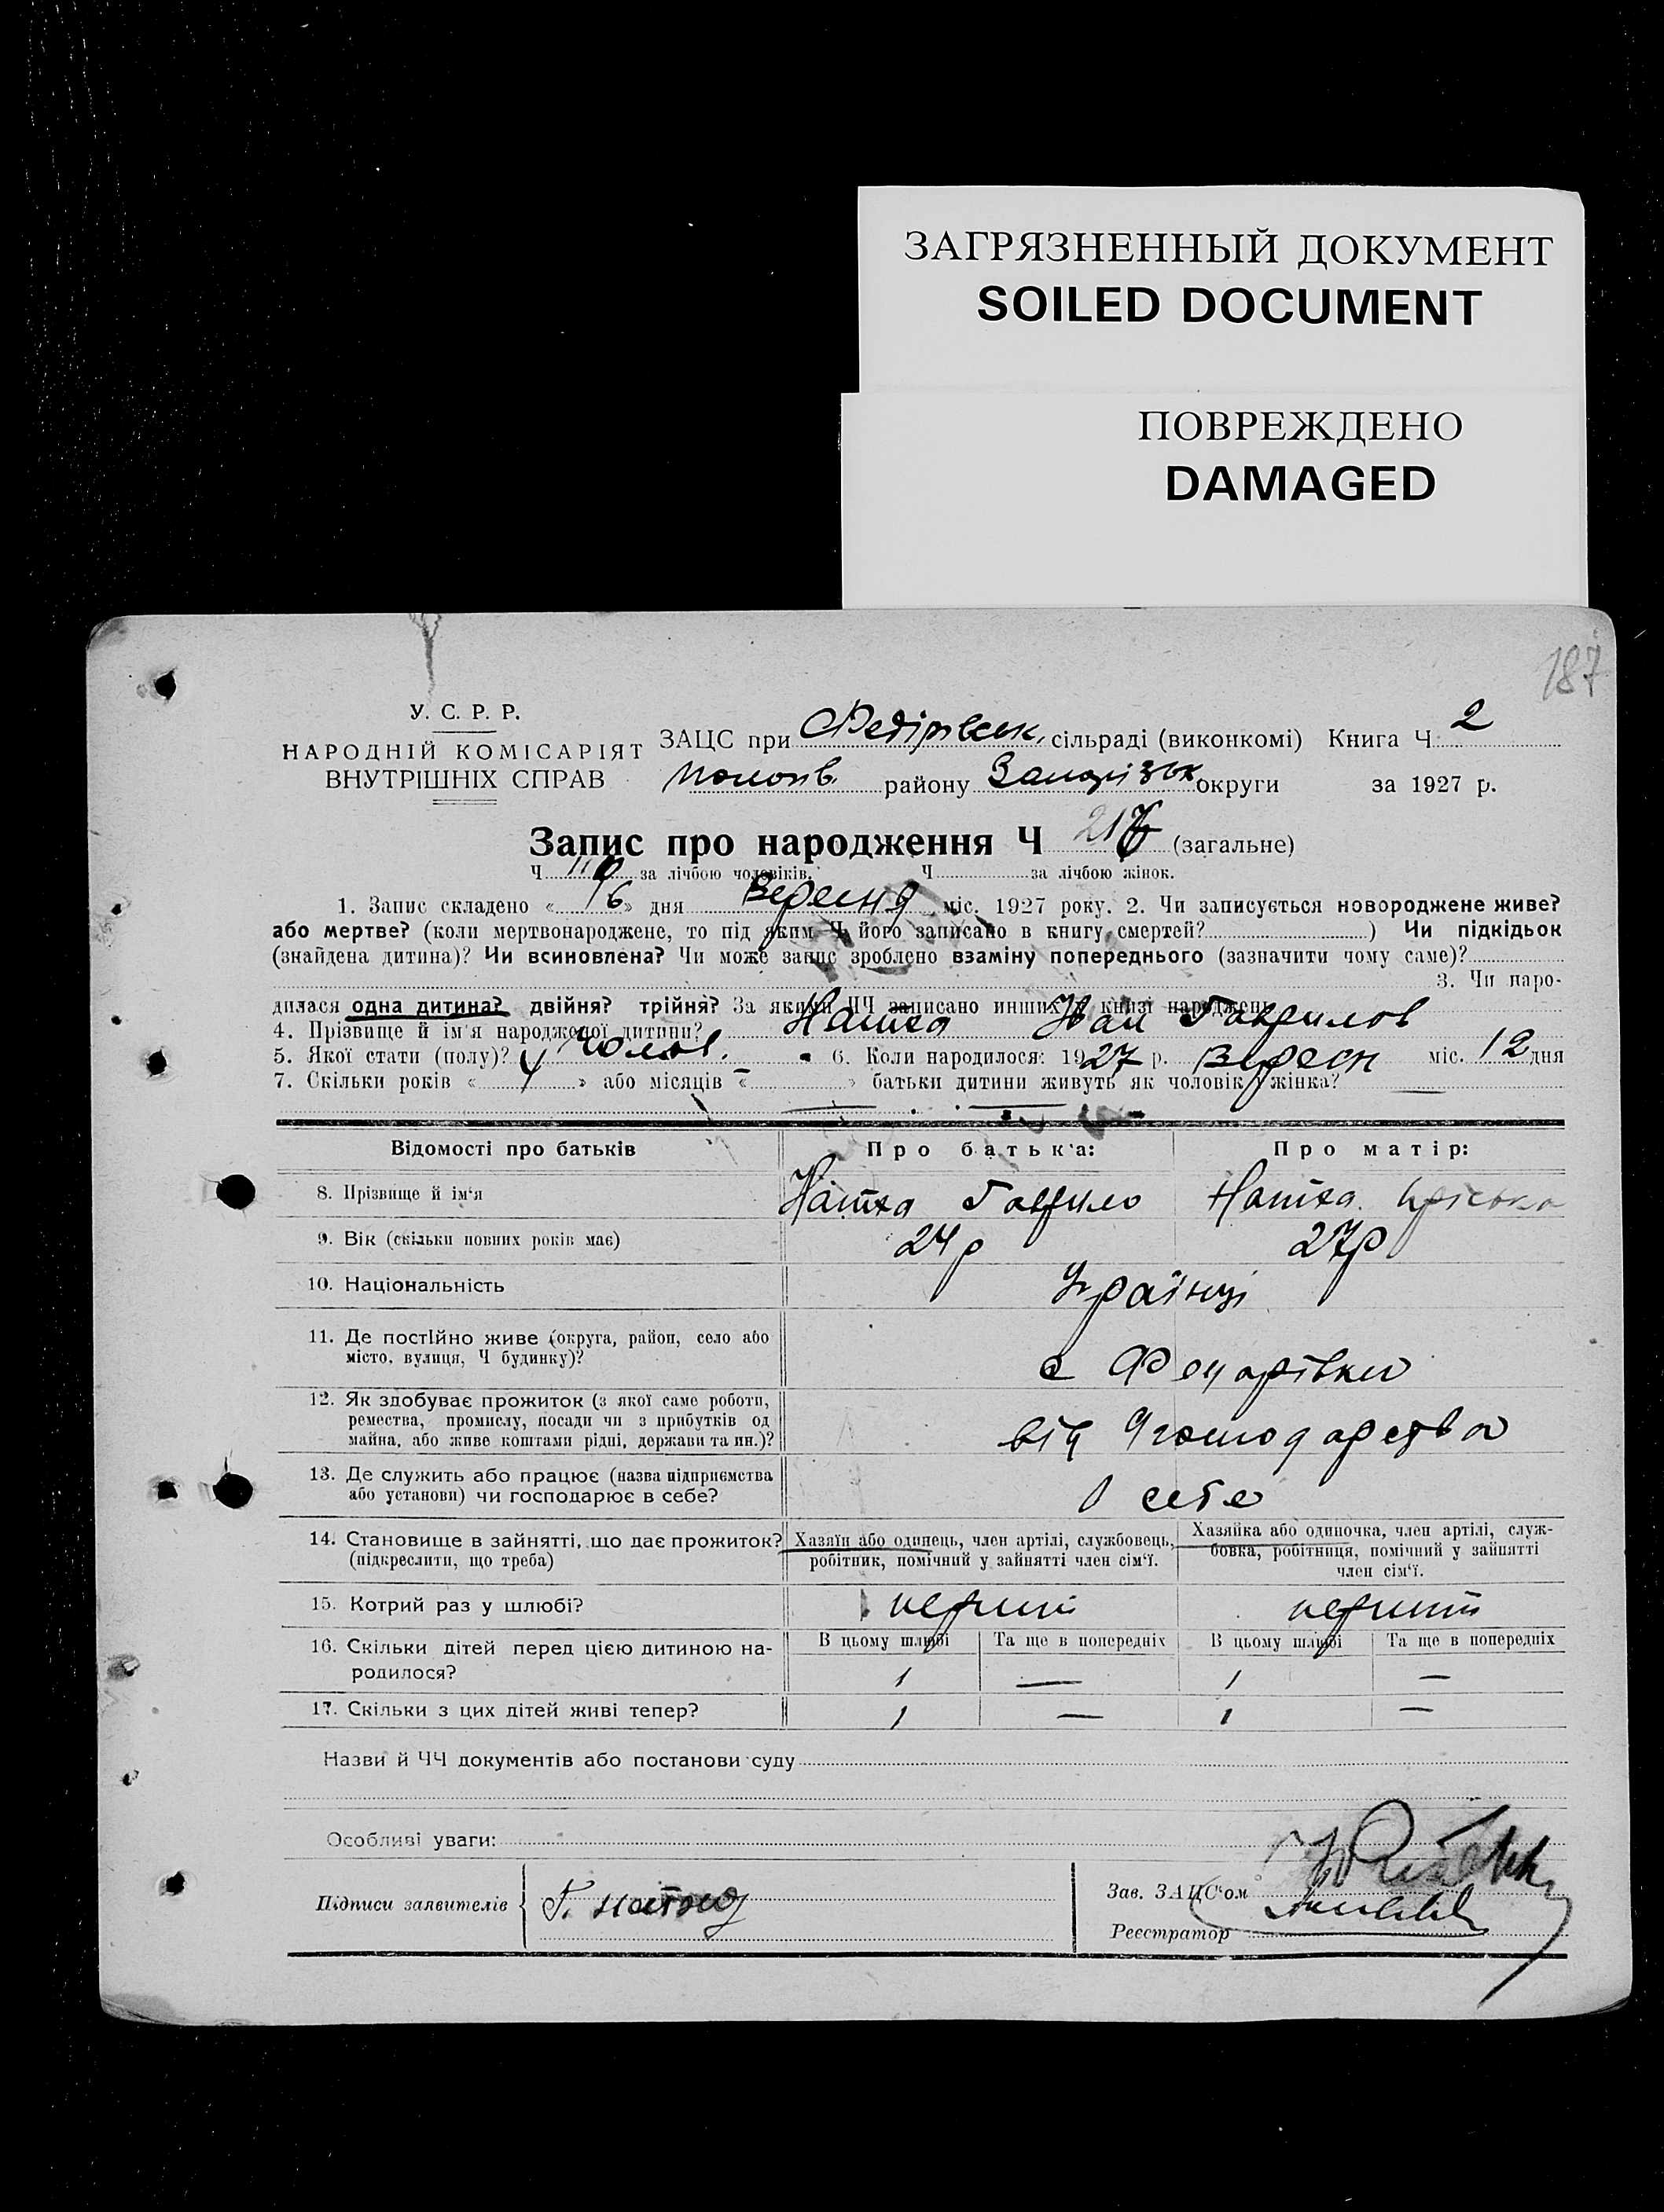 ЗАГРЯЗНЕННЫЙ ДОКУМЕНТ
SOILED DOCUMENT
ПОВРЕЖДЕНО
DAMAGED
187
У. С. Р. Р.
НАРОДНІЙ КОМІСАРІЯТ
ВНУТРІШНІХ СПРАВ
ЗАЦС при Федірівськ. сільраді (виконкомі) Книга Ч 2
району Запорізьк округи за 1927 р.
Запис про народження Ч 217 (загальне)
Ч 110 за лічбою чоловіків. Ч за лічбою жінок.
1. Запис складено « 16 » дня Вересня міс. 1927 року. 2. Чи записується новороджене живе?
або мертве? (коли мертвонароджене, то під яким Ч його записано в книгу смертей? ) Чи підкідьок
(знайдена дитина)? Чи всиновлена? Чи може запис зроблено взаміну попереднього (зазначити чому саме)?
3. Чи наро-
дилася одна дитина? двійня? трійня? За якими ЧЧ записано инших у книзі народжень
4. Прізвище й ім'я народженої дитини? Натха Іван Гаврилов
5. Якої стати (полу)? Чолов. 6. Коли народилося: 1927 р. Вересн міс. 12 дня
7. Скільки років « 4 » або місяців « — » батьки дитини живуть як чоловік і жінка? —
Відомості про батьків
Про батька:
Про матір:
8. Прізвище й ім'я Натха Гаврило Натха
9. Вік (скільки повних років має) 24 р 27 р
10. Національність Українці
11. Де постійно живе (округа, район, село або
місто, вулиця, Ч будинку)?
с
12. Як здобуває прожиток (з якої саме роботи,
ремества, промислу, посади чи з прибутків од
майна, або живе коштами рідні, держави та ин.)?
від
13. Де служить або працює (назва підприємства
або установи) чи господарює в себе?
в себе
14. Становище в зайнятті, що дає прожиток?
(підкреслити, що треба)
Хазяїн або одинець, член артілі, службовець,
робітник, помічний у зайнятті член сім'ї.
Хазяйка або одиночка, член артілі, служ-
бовка, робітниця, помічний у зайнятті
член сім'ї.
15. Котрий раз у шлюбі? перший перший
16. Скільки дітей перед цією дитиною на-
родилося?
В цьому шлюбі Та ще в попередніх В цьому шлюбі Та ще в попередніх
1 — 1 —
17. Скільки з цих дітей живі тепер? 1 — 1 —
Назви й ЧЧ документів або постанови суду
Особливі уваги:
Підписи заявителів Г. Натха
Зав. ЗАЦС'ом
Реєстратор